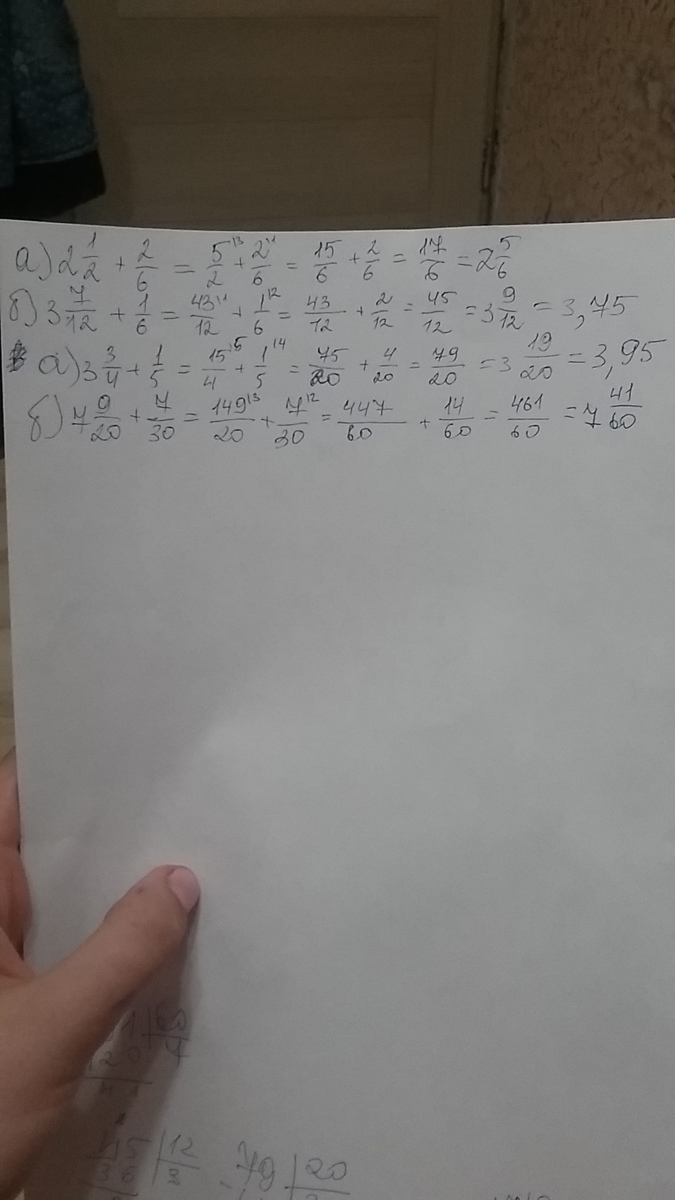 а) 2 1/2 + 2/6 = 5/2 |3 + 2/6 |1 = 15/6 + 2/6 = 17/6 = 2 5/6
б) 3 7/12 + 1/6 = 43/12 |1 + 1/6 |2 = 43/12 + 2/12 = 45/12 = 3 9/12 = 3,75
а) 3 3/4 + 1/5 = 15/4 |5 + 1/5 |4 = 75/20 + 4/20 = 79/20 = 3 19/20 = 3,95
б) 7 9/20 + 7/30 = 149/20 |3 + 7/30 |2 = 447/60 + 14/60 = 461/60 = 7 41/60